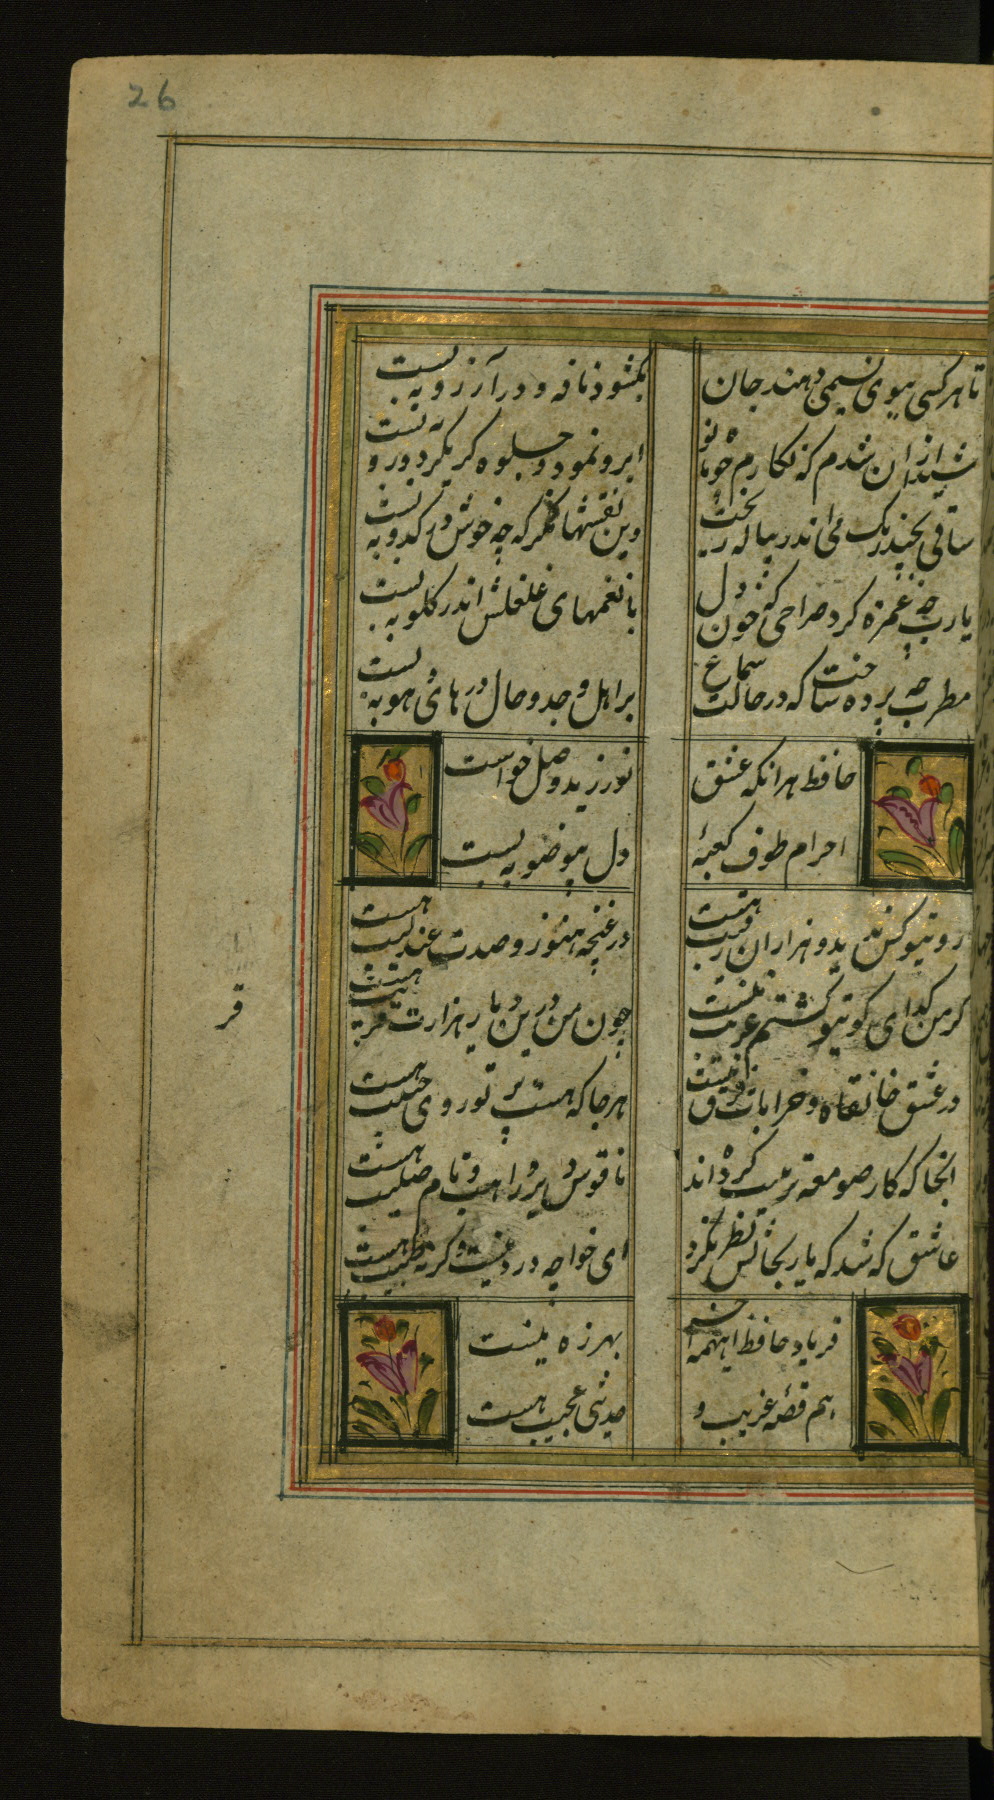 26
تا هر کسی ببوی نسیمی دهند جان
بگشود نافه و در آرزو به بست
شیدا از ان شدم که نکارم چو ماه نو
ابرو نمود و جلوه کری کرد و رو به بست
ساقی بچند رنک می اندر پیاله ریخت
وین نقشها نگر که چه خوش در کدو به بست
یا رب چه غمزه کرد صراحی که خون دل
با نغمهای غلغلش اندر کلو به بست
مطرب چه پرده ساخت که در حالت سماع
بر اهل وجد و حال در های و هو به بست
حافظ هر انکه عشق
نورزید و وصل خواست
احرام طوف کعبهٔ
دل بیوضو به بست
روتیو کس ندید و هزاران رقیب هست
در غنچه هنوز و صدت عندلیب هست
کر من کدای کوتیو کشتم غریب نیست
چون من درین دیار هزارت غریب هست
در عشق خانقاه و خرابات فرق نیست
هر جا که هست پرتو روی حبیب هست
انجا که کار صومعه ترتیب کرده اند
ناقوس و دیر و راهب و نام صلیب هست
عاشق که شد که یار بحالش نظر نکرد
ای خواجه درد نیست و کرنه طبیب هست
فریاد حافظ اینهمه اخر
بهرزه نیست
هم قصهٔ غریب و
حدیثی عجیب هست
قر